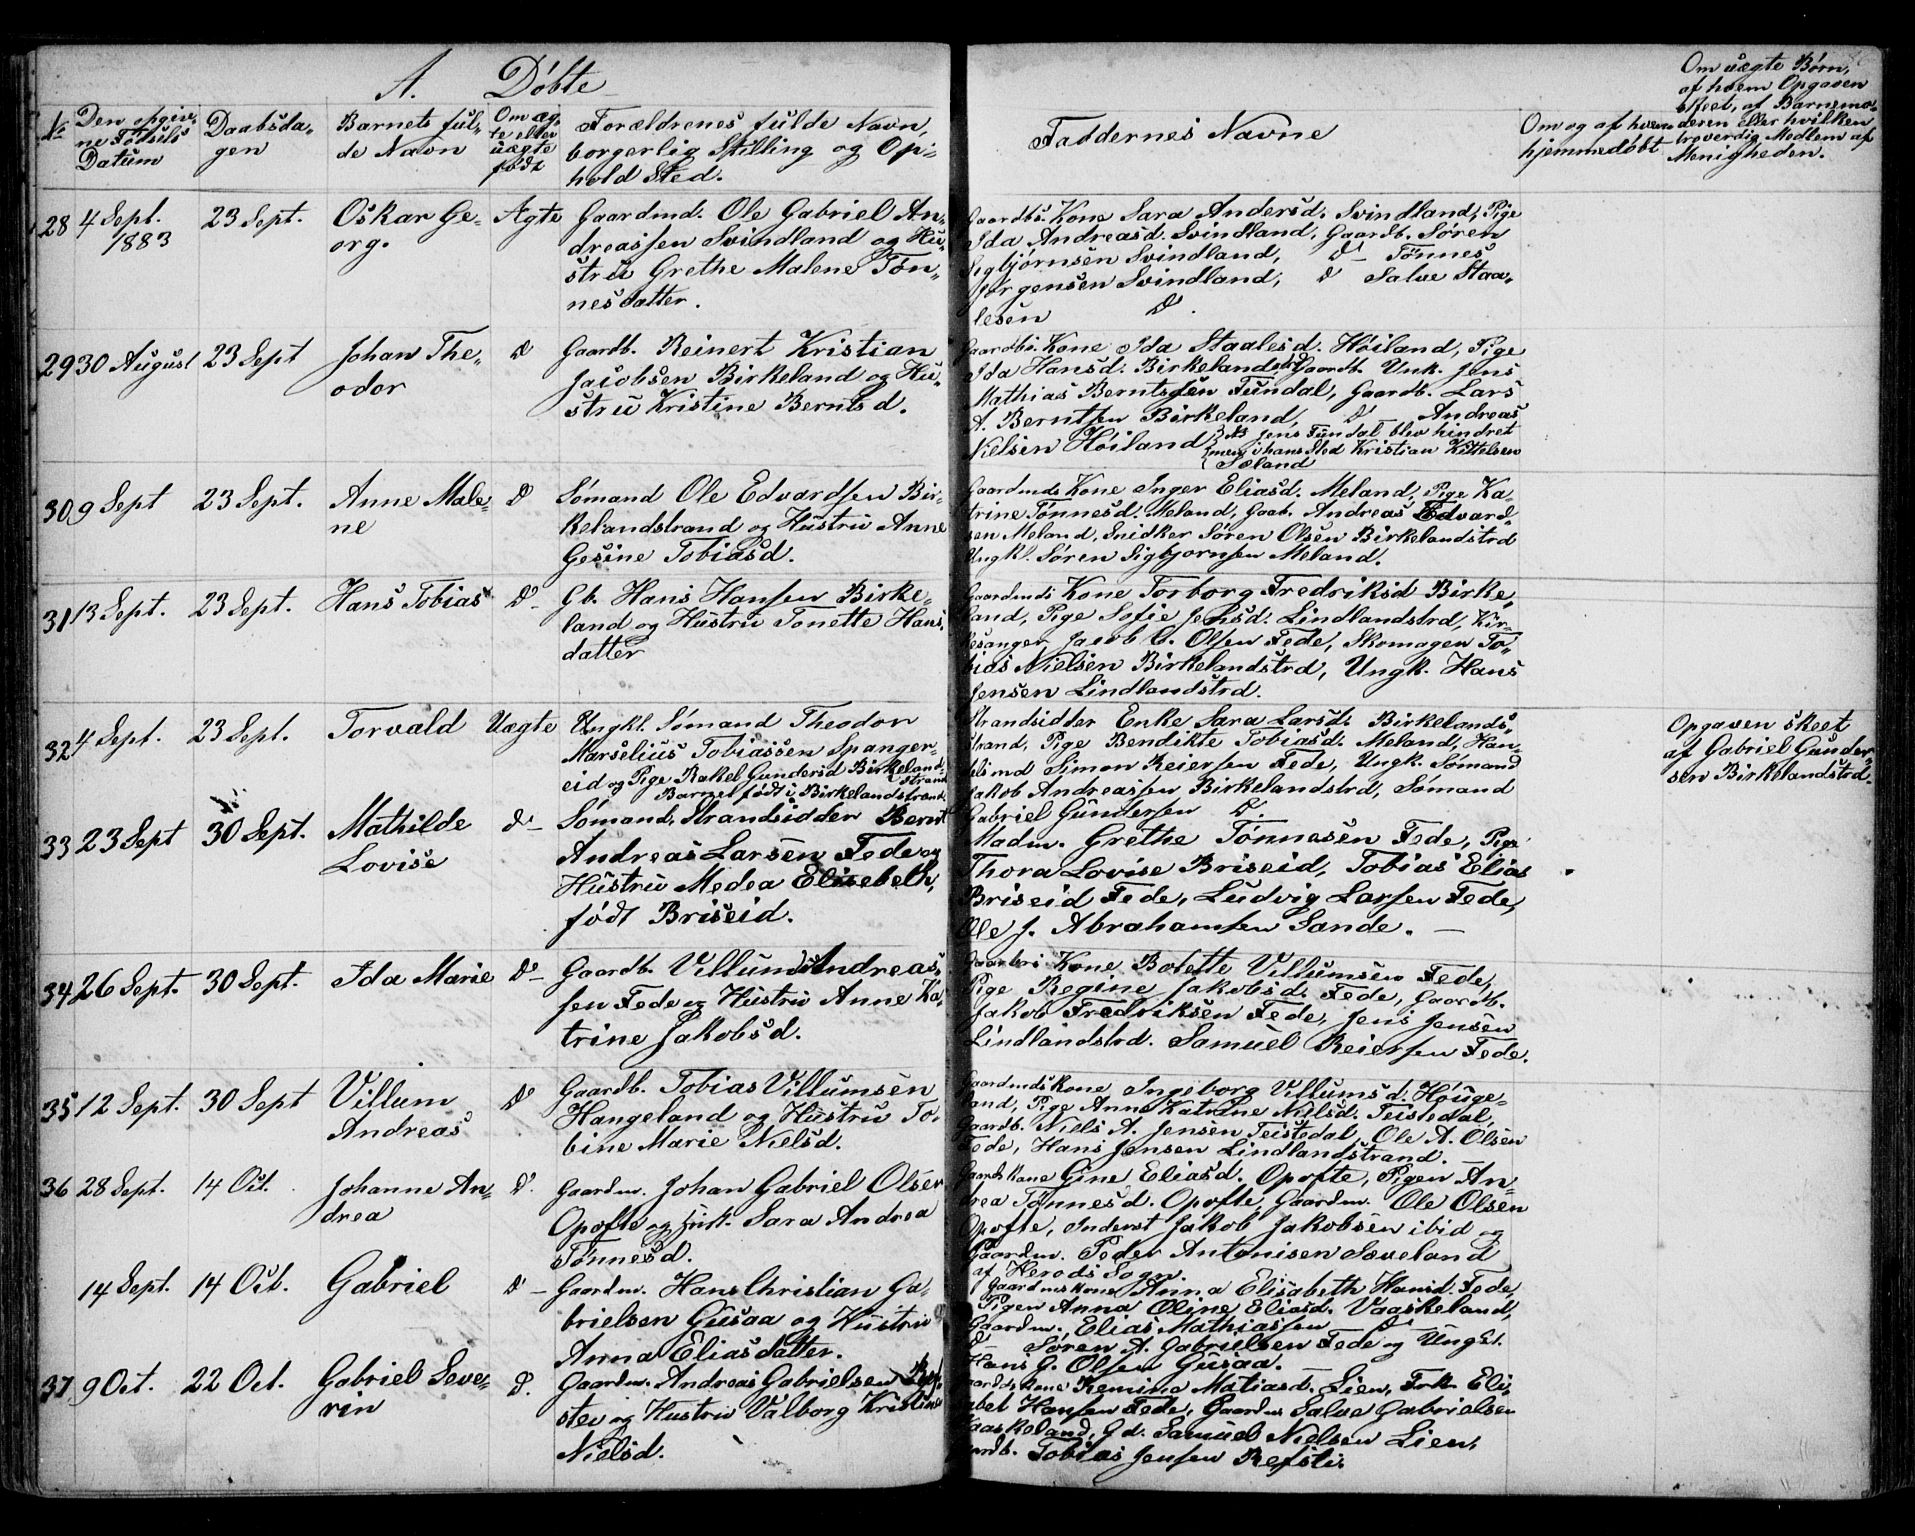 A. Døbte
№
Den opgivne Fødsels Datum
Daabsdagen
Barnets fulde Navn
Om ægte eller uægte født
Forældrenes fulde Navn, borgerlig Stilling og Ophold Sted.
Faddernes Navne
Om og af hvem hjemmedøbt
Om uægte Børn, af hvem Opgaven skeet, af Barnemoderen eller hvilken troverdig Medlem af Menigheden.
28 4 Sept. 1883 23 Sept. Oskar Georg. Ægte
Gaardmd. Ole Gabriel An-
dreassen Svindland og Hu-
stru Grethe Malene Tøn-
nesdatter.
Gaardbs. Kone Sara Andersd. Svindland, Pige
Ida Andreasd. Svindland, Gaardb. Søren
Sigbjørnsen Svindland, do Tønnes
Jørgensen Svindland, do Salve Staa-
lesen do.
29 30 August 23 Sept Johan Theodor do
Gaardb. Reinert Kristian
Jacobsen Birkeland og Hu-
stru Kristine Berntsd.
Gaardbs. Kone Ida Staalesd. Høiland, Pige
Ida Hansd. Birkelandstrd Gaardb. Unk. Jens
Mathias Berntssen Fundal, Gaardb. Lars
A. Berntsen Birkeland, do Andreas
Nielsen Høiland } NB Jens Fundal blev hindret
men i hans Sted Kristian Kittelsen
Sæland
30 9 Sept 23 Sept. Anne Malene do
Sømand Ole Edvardsen Bir-
kelandstrand og Hustru Anne
Gesine Tobiasd.
Gaardmds Kone Inger Eliasd. Meland, Pige Ka-
trine Tønnesd. Meland, Gaab. Andreas Edvard-
sen Meland, Snidker Søren Olsen Birkelandstrd
Ungkl. Søren Sigbjornsen Meland.
31 13 Sept. 23 Sept. Hans Tobias do
Gb. Hans Hansen Birke-
land og Hustru Tonette Hans-
datter
Gaardmds Kone Torborg Fredriksd Birke-
land, Pige Sofie Jensd. Lindlandstrd, Kir-
kesanger Jacob C. Olsen Fede, Skomager To-
bias Nielsen Birkelandstrd, Ungk. Hans
Jensen Lindlandstrd.
32 4 Sept. 23 Sept. Torvald Uægte
Ungkl. Sømand Theodor
Marselius Tobiassen Spanger-
eid og Pige Rakel Gundersd Birkeland-
strand
Barnet født i Birkelandstrand
Strandsidder Enke Sara Larsd. Birkelands-
strand, Pige Bendikte Tobiasd. Meland, Han-
delsmd Simon Reiersen Fede, Ungk. Sømand
Jakob Andreassen Birkelandstrd, Sømand
Gabriel Gundersen do.
Opgaven skeet
af Gabriel Gunder-
sen Birkelandstrd.
33 23 Sept 30 Sept. Mathilde Lovise do
Sømand, Strandsidder Bernt
Andreas Larsen Fede og
Hustru Medea Elisebeth,
født Briseid.
Madm. Grethe Tønnesen Fede, Pige
Thora Lovise Briseid, Tobias Elias
Briseid Fede, Ludvig Larsen Fede,
Ole J. Abrahamsen Sande.
34 26 Sept. 30 Sept. Ida Marie do
Gaardb. Villum Andreas-
sen Fede og Hustru Anne Ka-
trine Jakobsd.
Gaardbs Kone Bolette Villumsen Fede,
Pige Regine Jakobsd. Fede, Gaardb.
Jakob Fredriksen Fede, Jens Jensen
Lindlandstrd. Samuel Reiersen Fede.
35 12 Sept. 30 Sept Villum Andreas do
Gaardb. Tobias Villumsen
Hangeland og Hustru To-
bine Marie Nielsd.
Gaardmds Kone Ingeborg Villumsd. Houge-
land, Pige Anne Katrine Nielsd. Teistedal,
Gaardb. Niels A. Jensen Teistedal, Ole A. Olsen
Fede, Hans Jensen Lindlandstrand.
36 28 Sept. 14 Oct. Johanne Andrea do.
Gaardm. Johan Gabriel Olsen
Opofte og Hust. Sara Andrea
Tønnesd.
Gaards Kone Gine Eliasd. Opofte, Pigen An-
drea Tønnesd. Opofte, Gaardm. Ole Olsen
Opofte, Inderst Jakob Jakobsen ibid og
Gaardm. Peder Antonisen Sæveland
af Herods Sogn.
14 Sept. 14 Oct. Gabriel do
Gaardm. Hans Christian Ga-
brielsen Gusaa og Hustru
Anna Eliasdatter.
Gaardms Kone Anna Elisabeth Hansd. Fede,
Pigen Anna Oline Eliasd. Vaaskeland,
Gaardm. Elias Mathiassen do
do Søren A. Gabrielsen Fede og Ungk.
Hans G. Olsen Gusaa.
37 9 Oct. 22 Oct. Gabriel Severin do.
Gaardm. Andreas Gabrielsen Ref-
stei og Hustru Valborg Kristine
Nielsd.
Gaards Kone Remina Matiasd. Lien, Frk. Eli-
sabet Hansen Fede, Gaardm Salve Gabrielsen
Vaaskeland, Gd. Samuel Nielsen Lien,
Gaardb. Tobias Jensen Refsti.